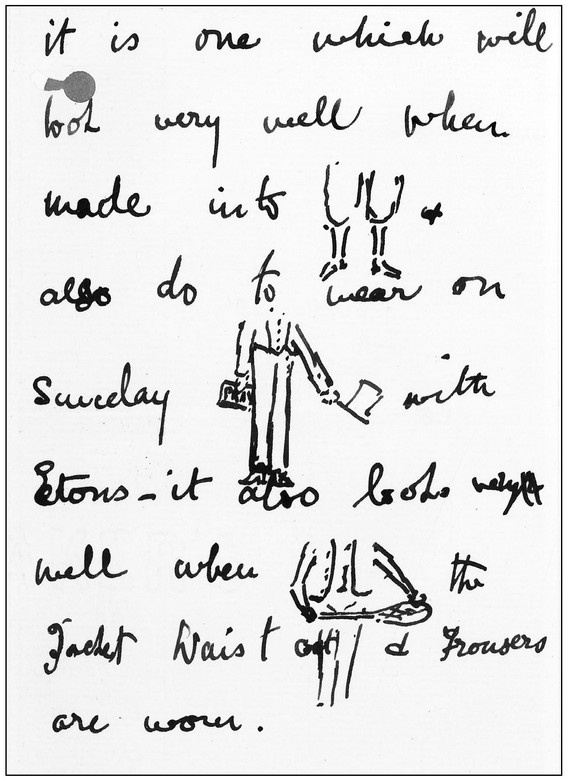 it is one which will
look very well when
made into
also do to wear on
Sunday with
Etons - it also looks very
well when the
Jacket Waist & Trousers
are worn.